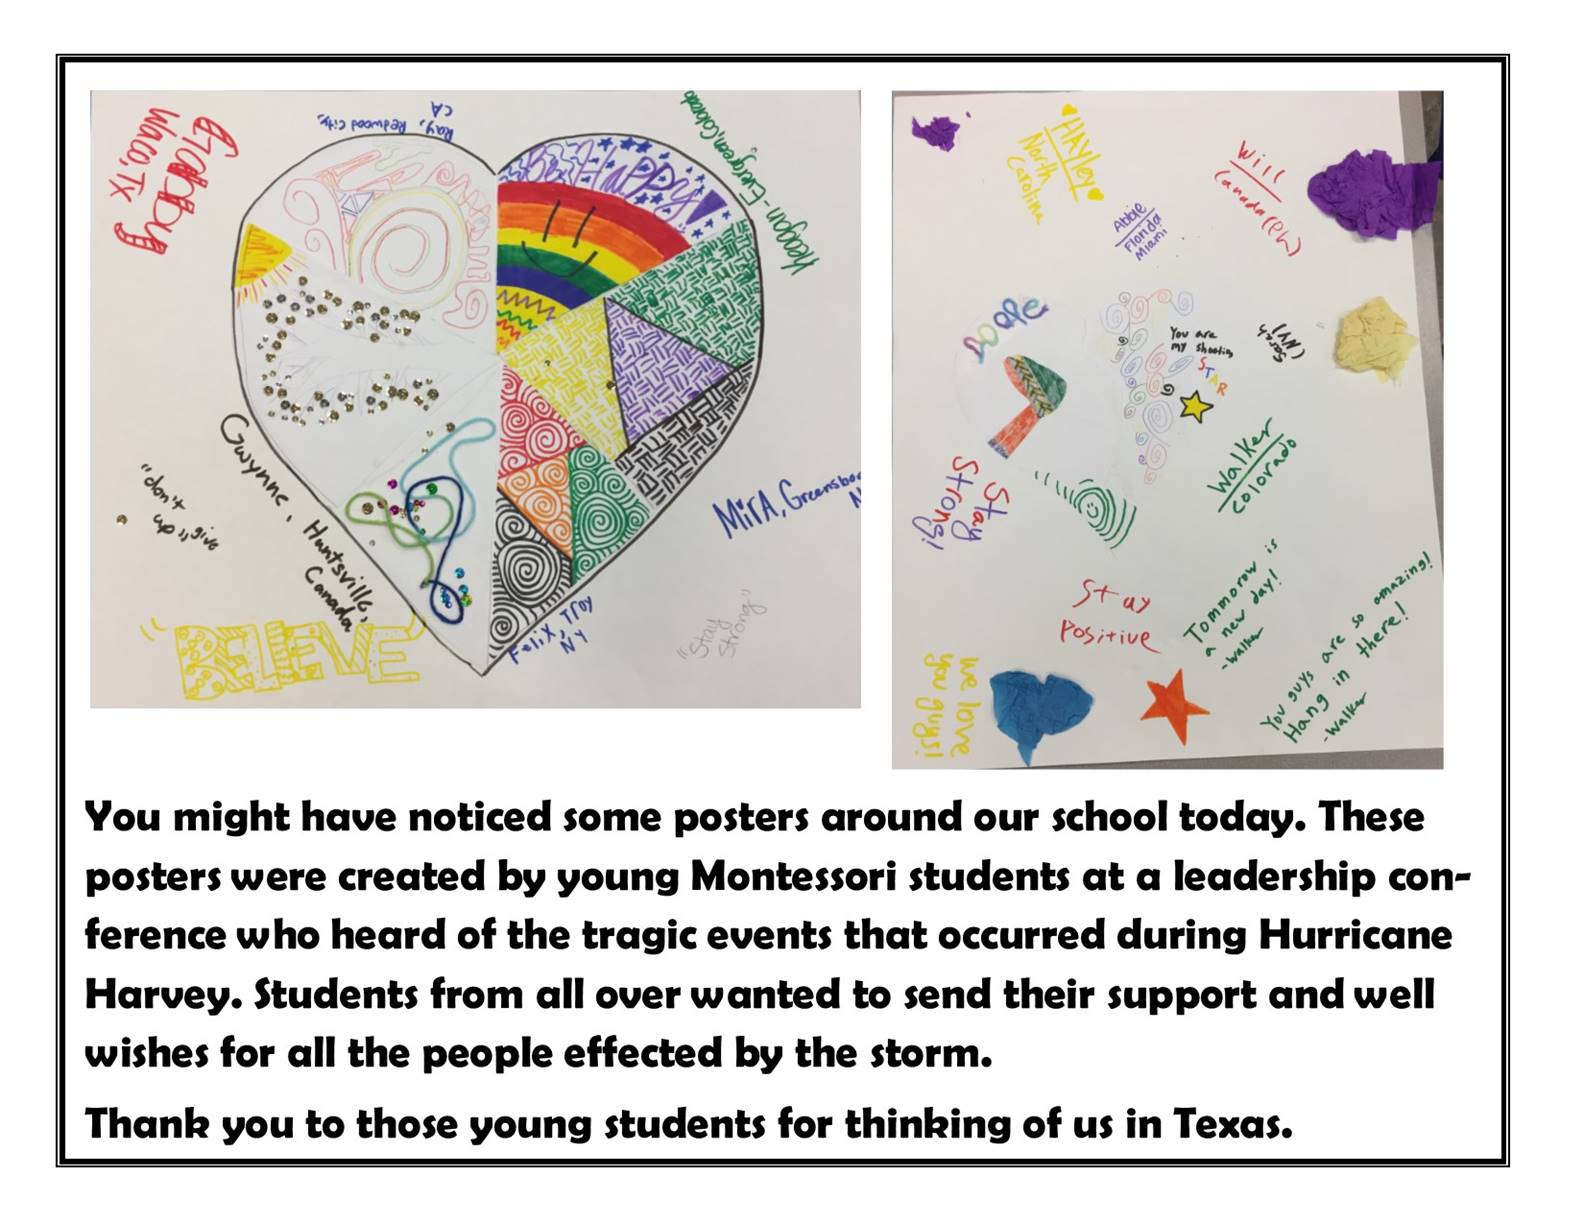 Gabby
Waco, TX
Ray, Redwood City,
CA
Be Happy!
Keagan - Evergreen, Colorado
Gwynne, Huntsville,
Canada
"don't
give
up"
"BELIEVE"
Felix, Troy
NY
MirA, Greensbo
N
"Stay
Strong"
HAYley
North
Carolina
Abbie
Florida
Miami
Will
Canada
You are
my shooting
STAR
Sarah
(NY)
Walker
Colorado
Stay
Strong!
Stay
Positive
Tommorow is
a new day!
-walker
You guys are so amazing!
Hang in there!
-walker
we love
you guys!
You might have noticed some posters around our school today. These
posters were created by young Montessori students at a leadership con-
ference who heard of the tragic events that occurred during Hurricane
Harvey. Students from all over wanted to send their support and well
wishes for all the people effected by the storm.
Thank you to those young students for thinking of us in Texas.